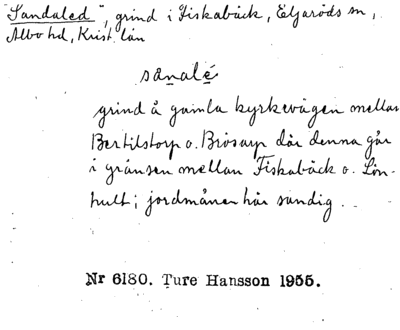 "Sandaled", grind i Fiskabäck, Eljaröds sn,
Albo hd, Krist. län
sa̲nalé̲
grind å gamla kyrkevägen mellan
Bertilstorp o. Brösarp där denna går
i gränsen mellan Fiskabäck o. Lön-
hult; jordmånen här sandig...
Nr 6180. Ture Hansson 1955.